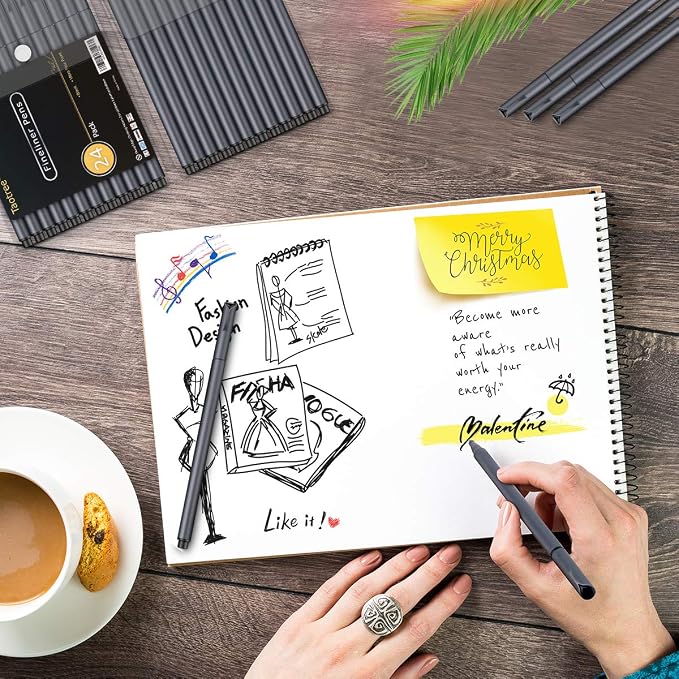 Taotree
Fineliner Pens
24
Pack
Fashion
Design
skate
FASHA
MAGAZINE
OGUE
Like it!
Merry
Christmas
"Become more
aware
of what's really
worth your
energy."
Malentine